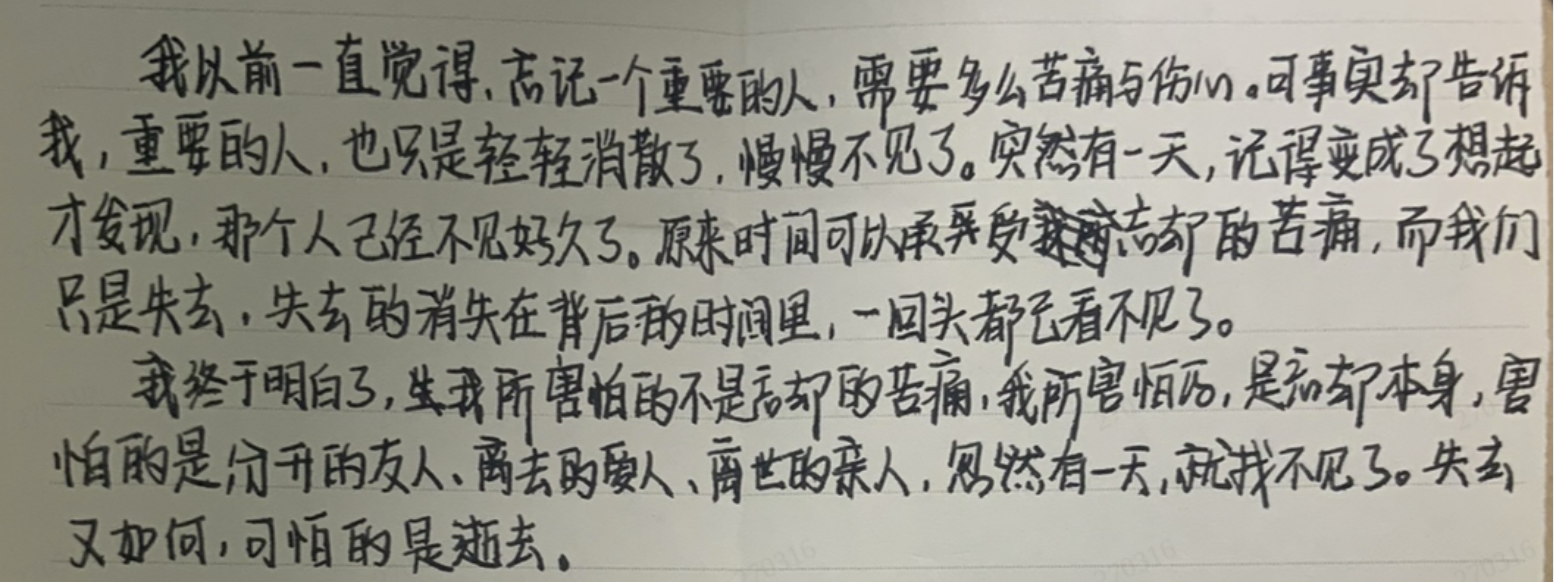 我以前一直觉得,忘记一个重要的人,需要多么苦痛与伤心。可事实却告诉
我,重要的人,也只是轻轻消散了,慢慢不见了。突然有一天,记得变成了想起
才发现,那个人已经不见好久了。原来时间可以承受忘却的苦痛,而我们
只是失去,失去的消失在背后的时间里,一回头都已看不见了。
我终于明白了,我所害怕的不是忘却的苦痛,我所害怕的,是忘却本身,害
怕的是分开的友人、离去的爱人、离世的亲人,忽然有一天,就找不见了。失去
又如何,可怕的是逝去。